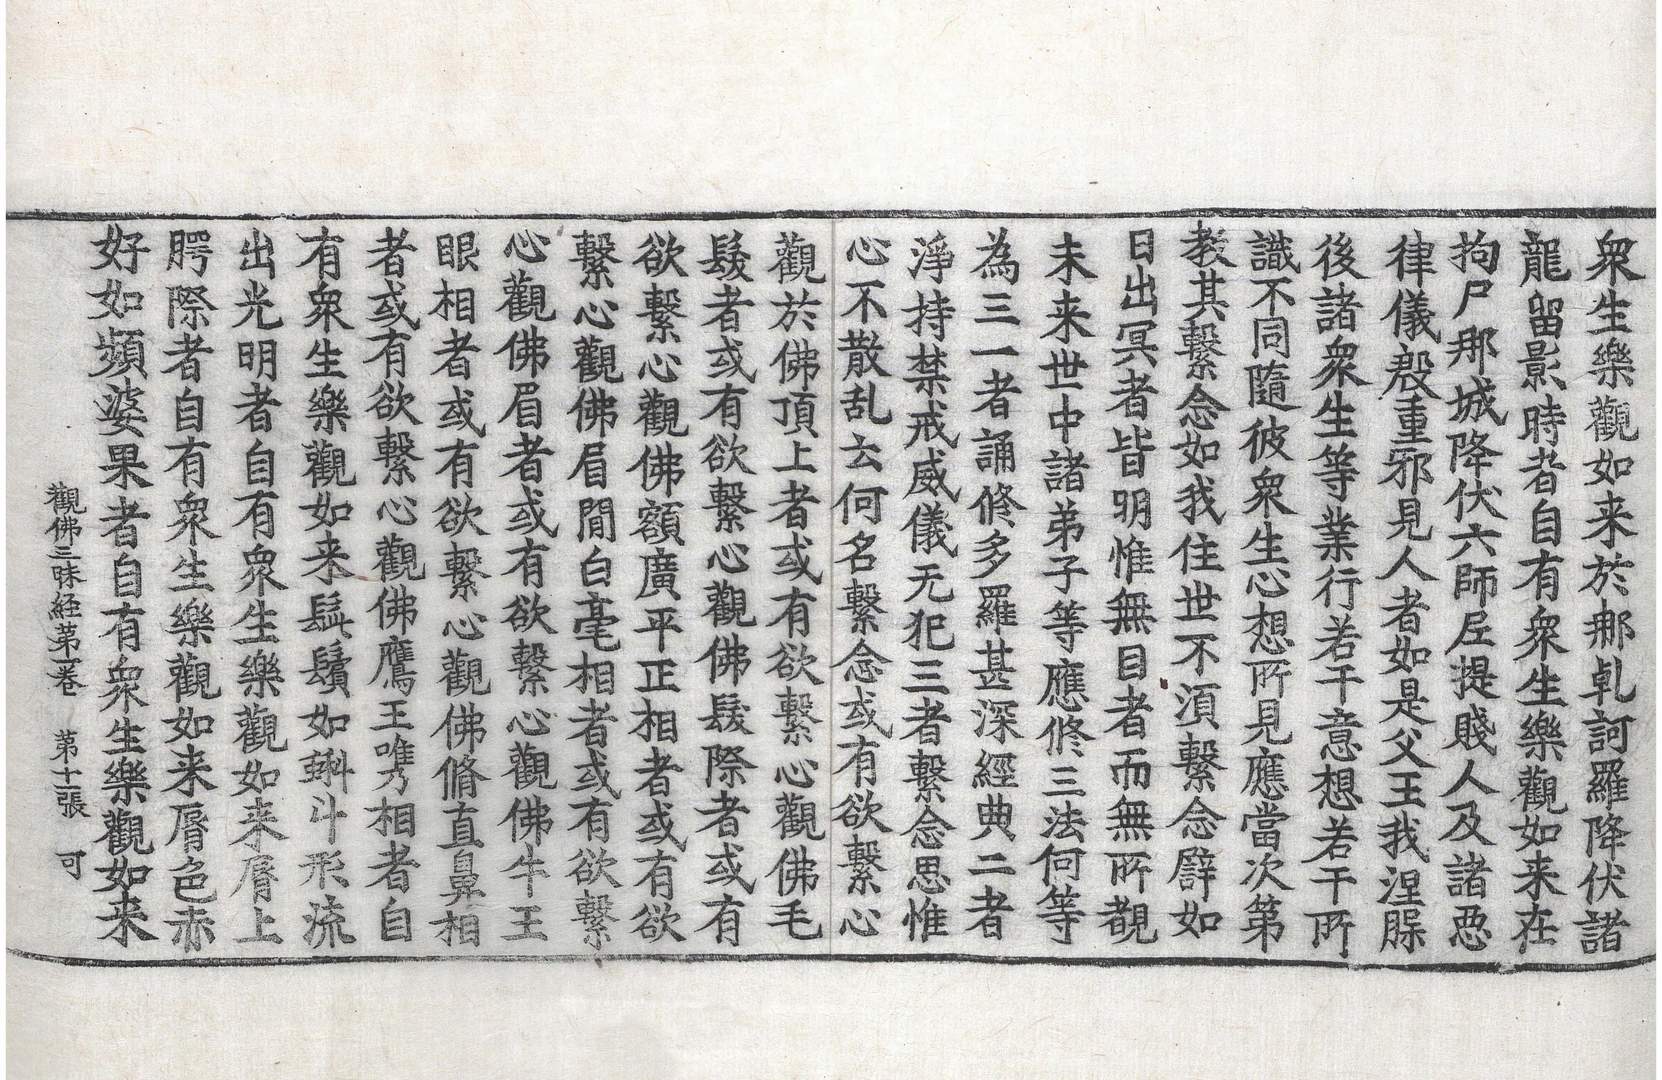 衆生樂觀如来於那乹訶羅降伏諸
龍留影時者自有衆生樂觀如来在
拘尸那城降伏六師尼提賤人及諸惡
律儀殷重邪見人者如是父王我涅膟
後諸衆生等業行若干意想若干所
識不同隨彼衆生心想所見應當次第
教其繫念如我住世不湏繫念譬如
日出冥者皆明惟無目者而無所覩
未来世中諸弟子等應修三法何等
為三一者誦修多羅甚深經典二者
淨持禁戒威儀无犯三者繫念思惟
心不散乱云何名繫念或有欲繫心
觀於佛頂上者或有欲繫心觀佛毛
髮者或有欲繫心觀佛髮際者或有
欲繫心觀佛額廣平正相者或有欲
繫心觀佛眉間白毫相者或有欲繫
心觀佛眉者或有欲繫心觀佛牛王
眼相者或有欲繫心觀佛脩直鼻相
者或有欲繫心觀佛鷹王㗻相者自
有衆生樂觀如来髭鬚如蝌斗形流
出光明者自有衆生樂觀如来脣上
腭際者自有衆生樂觀如来脣色赤
好如頻婆果者自有衆生樂觀如来
觀佛三昧経第一卷 第十二張 可